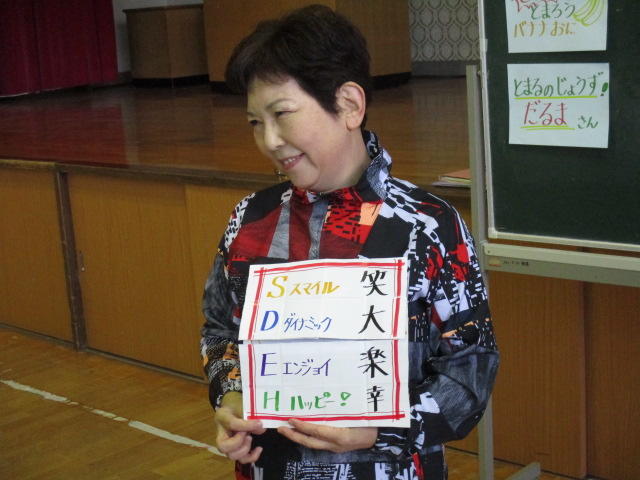 とまろう
バナナおに
とまるのじょうず!
だるまさん
S スマイル 笑
D ダイナミック 大
E エンジョイ 楽
H ハッピー! 幸